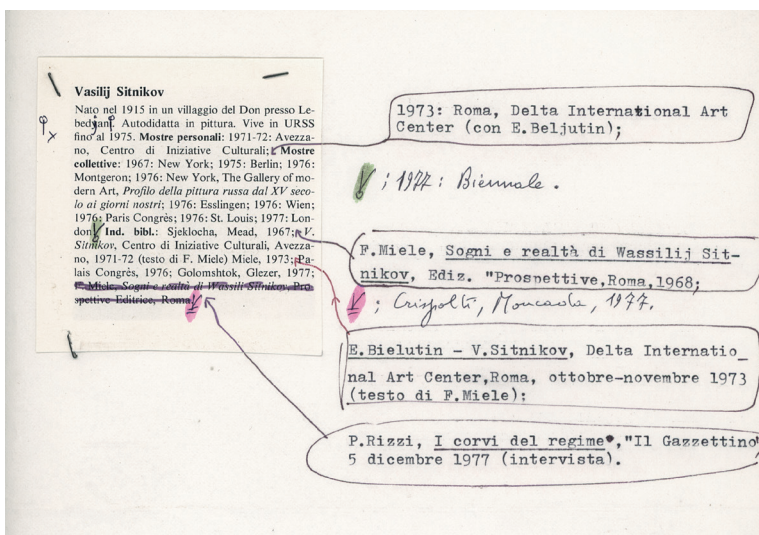 Vasilij Sitnikov
Nato nel 1915 in un villaggio del Don presso Le-
bedjanj. Autodidatta in pittura. Vive in URSS
fino al 1975. Mostre personali: 1971-72: Avezza-
no, Centro di Iniziative Culturali; Mostre
collettive: 1967: New York; 1975: Berlin; 1976:
Montgeron; 1976: New York, The Gallery of mo-
dern Art, Profilo della pittura russa dal XV seco-
lo ai giorni nostri; 1976: Esslingen; 1976: Wien;
1976: Paris Congrès; 1976: St. Louis; 1977: Lon-
don Ind. bibl.: Sjeklocha, Mead, 1967; V.
Sitnikov, Centro di Iniziative Culturali, Avezza-
no, 1971-72 (testo di F. Miele) Miele, 1973; Pa-
lais Congrès, 1976; Golomshtok, Glezer, 1977;
F. Miele, Sogni e realtà di Wassili Sitnikov, Pro
spettive Editrice, Roma
1973: Roma, Delta International Art
Center (con E.Beljutin);
; 1977: Biennale.
F.Miele, Sogni e realtà di Wassilij Sit-
nikov, Ediz. "Prospettive,Roma,1968;
; Crispolti, Moncada, 1977.
E.Bielutin - V.Sitnikov, Delta Internatio_
nal Art Center,Roma, ottobre-novembre 1973
(testo di F.Miele);
P.Rizzi, I corvi del regime","Il Gazzettino"
5 dicembre 1977 (intervista).